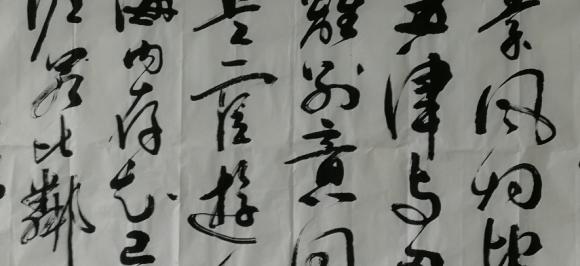 秦風烟望
五津与君
離別意同
是宦遊
海内存知己
涯若比鄰